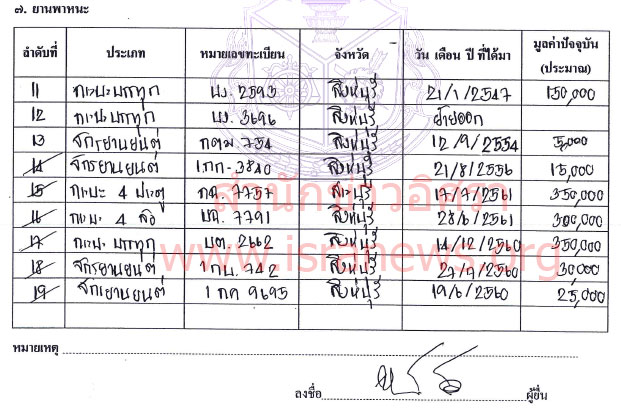 ๗. ยานพาหนะ
ลำดับที่ ประเภท หมายเลขทะเบียน จังหวัด วัน เดือน ปี ที่ได้มา มูลค่าปัจจุบัน (ประมาณ)
11 กะบะบรรทุก บง. 2593 สิงห์บุรี 21/1/2547 150,000
12 กะบะบรรทุก บง. 3696 สิงห์บุรี ย้ายออก
13 จักรยานยนต์ กตม. 754 สิงห์บุรี 12/9/2554 5,000
14 จักรยานยนต์ 1กก. 3840 สิงห์บุรี 21/8/2556 15,000
15 กะบะ 4 ประตู กจ. 7757 สระบุรี 17/7/2561 350,000
16 กะบะ 4 ล้อ บก. 7791 สิงห์บุรี 28/6/2561 300,000
17 กะบะ บรรทุก บต. 2662 สิงห์บุรี 14/12/2560 350,000
18 จักรยานยนต์ 1กบ. 742 สิงห์บุรี 27/7/2560 30,000
19 จักรยานยนต์ 1กค 9695 สิงห์บุรี 19/6/2560 25,000
สำนักข่าวอิศรา
www.isranews.org
หมายเหตุ
ลงชื่อ ผู้ยื่น